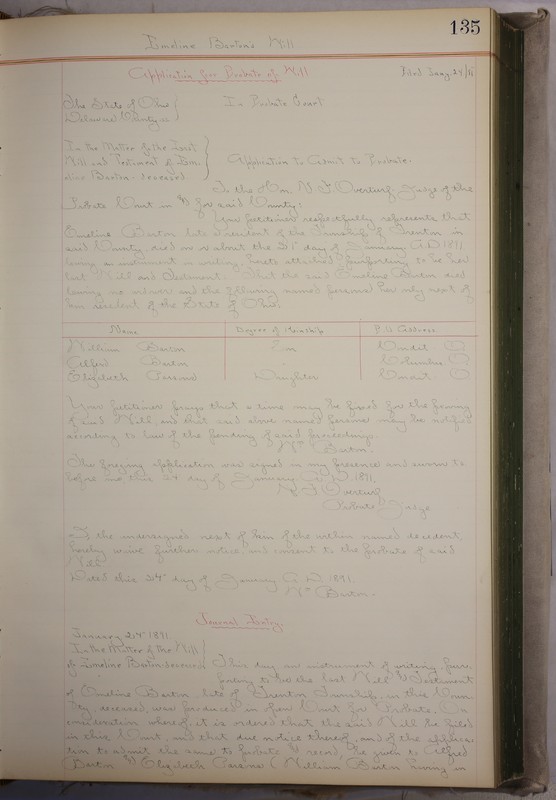 135
Emeline Barton's Will
Application for Probate of Will Filed Jany. 24/91
The State of Ohio
Delaware County ss In Probate Court
In the Matter of the Last
Will and Testament of Eme-
line Barton deceased Application to Admit to Probate.
To the Hon. N F Overturf Judge of the
Probate Court in & for said County:
Your petitioner respectfully represents that
Emeline Barton late a resident of the Township of Trenton in
said County, died on or about the 21st day of January A.D. 1891
leaving an instrument in writing, hereto attached, purporting to be her
last Will and Testament. That the said Emeline Barton died
leaving no widower and the following named persons her only next of
kin resident of the State of Ohio:
Name Degree of Kinship P.O. Address
William Barton Son O
Alfred Barton " Columbus O
Elizabeth Parsons Daughter O
Your petitioner prays that a time may be fixed for the proving
of said Will, and that said above named persons may be notified
according to law of the pendency of said proceedings.
Wm Barton.
The foregoing application was signed in my presence and sworn to
before me this 24 day of January A.D. 1891.
N F Overturf
Probate Judge
I the undersigned next of kin of the within named decedent,
hereby waive further notice, and consent to the probate of said
Will.
Dated this 24" day of January A D 1891.
Wm Barton.
Journal Entry.
January 24" 1891
In the Matter of the Will
of Emeline Barton deceased This day an instrument of writing, pur-
porting to be the last Will & Testament
of Emeline Barton, late of Trenton Township, in this Coun-
ty, deceased, was produced in open Court for Probate. On
consideration whereof, it is ordered that the said Will be filed
in this Court, and that due notice thereof, and of the applica-
tion to admit the same to probate & record, be given to Alfred
Barton & Elizabeth Parsons (William Barton having in